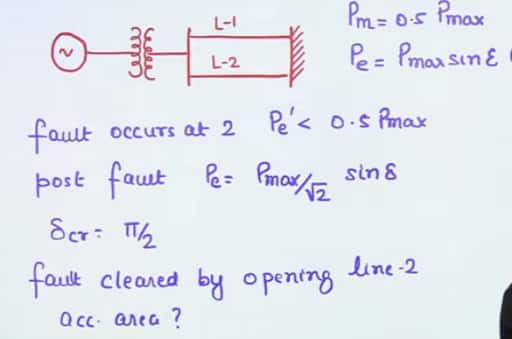 L-1
L-2
~
Pm = 0.5 Pmax
Pe = Pmax sin δ
fault occurs at 2 Pe' < 0.5 Pmax
post fault Pe = Pmax/√2 sin δ
δcr = π/2
fault cleared by opening line-2
acc. area ?